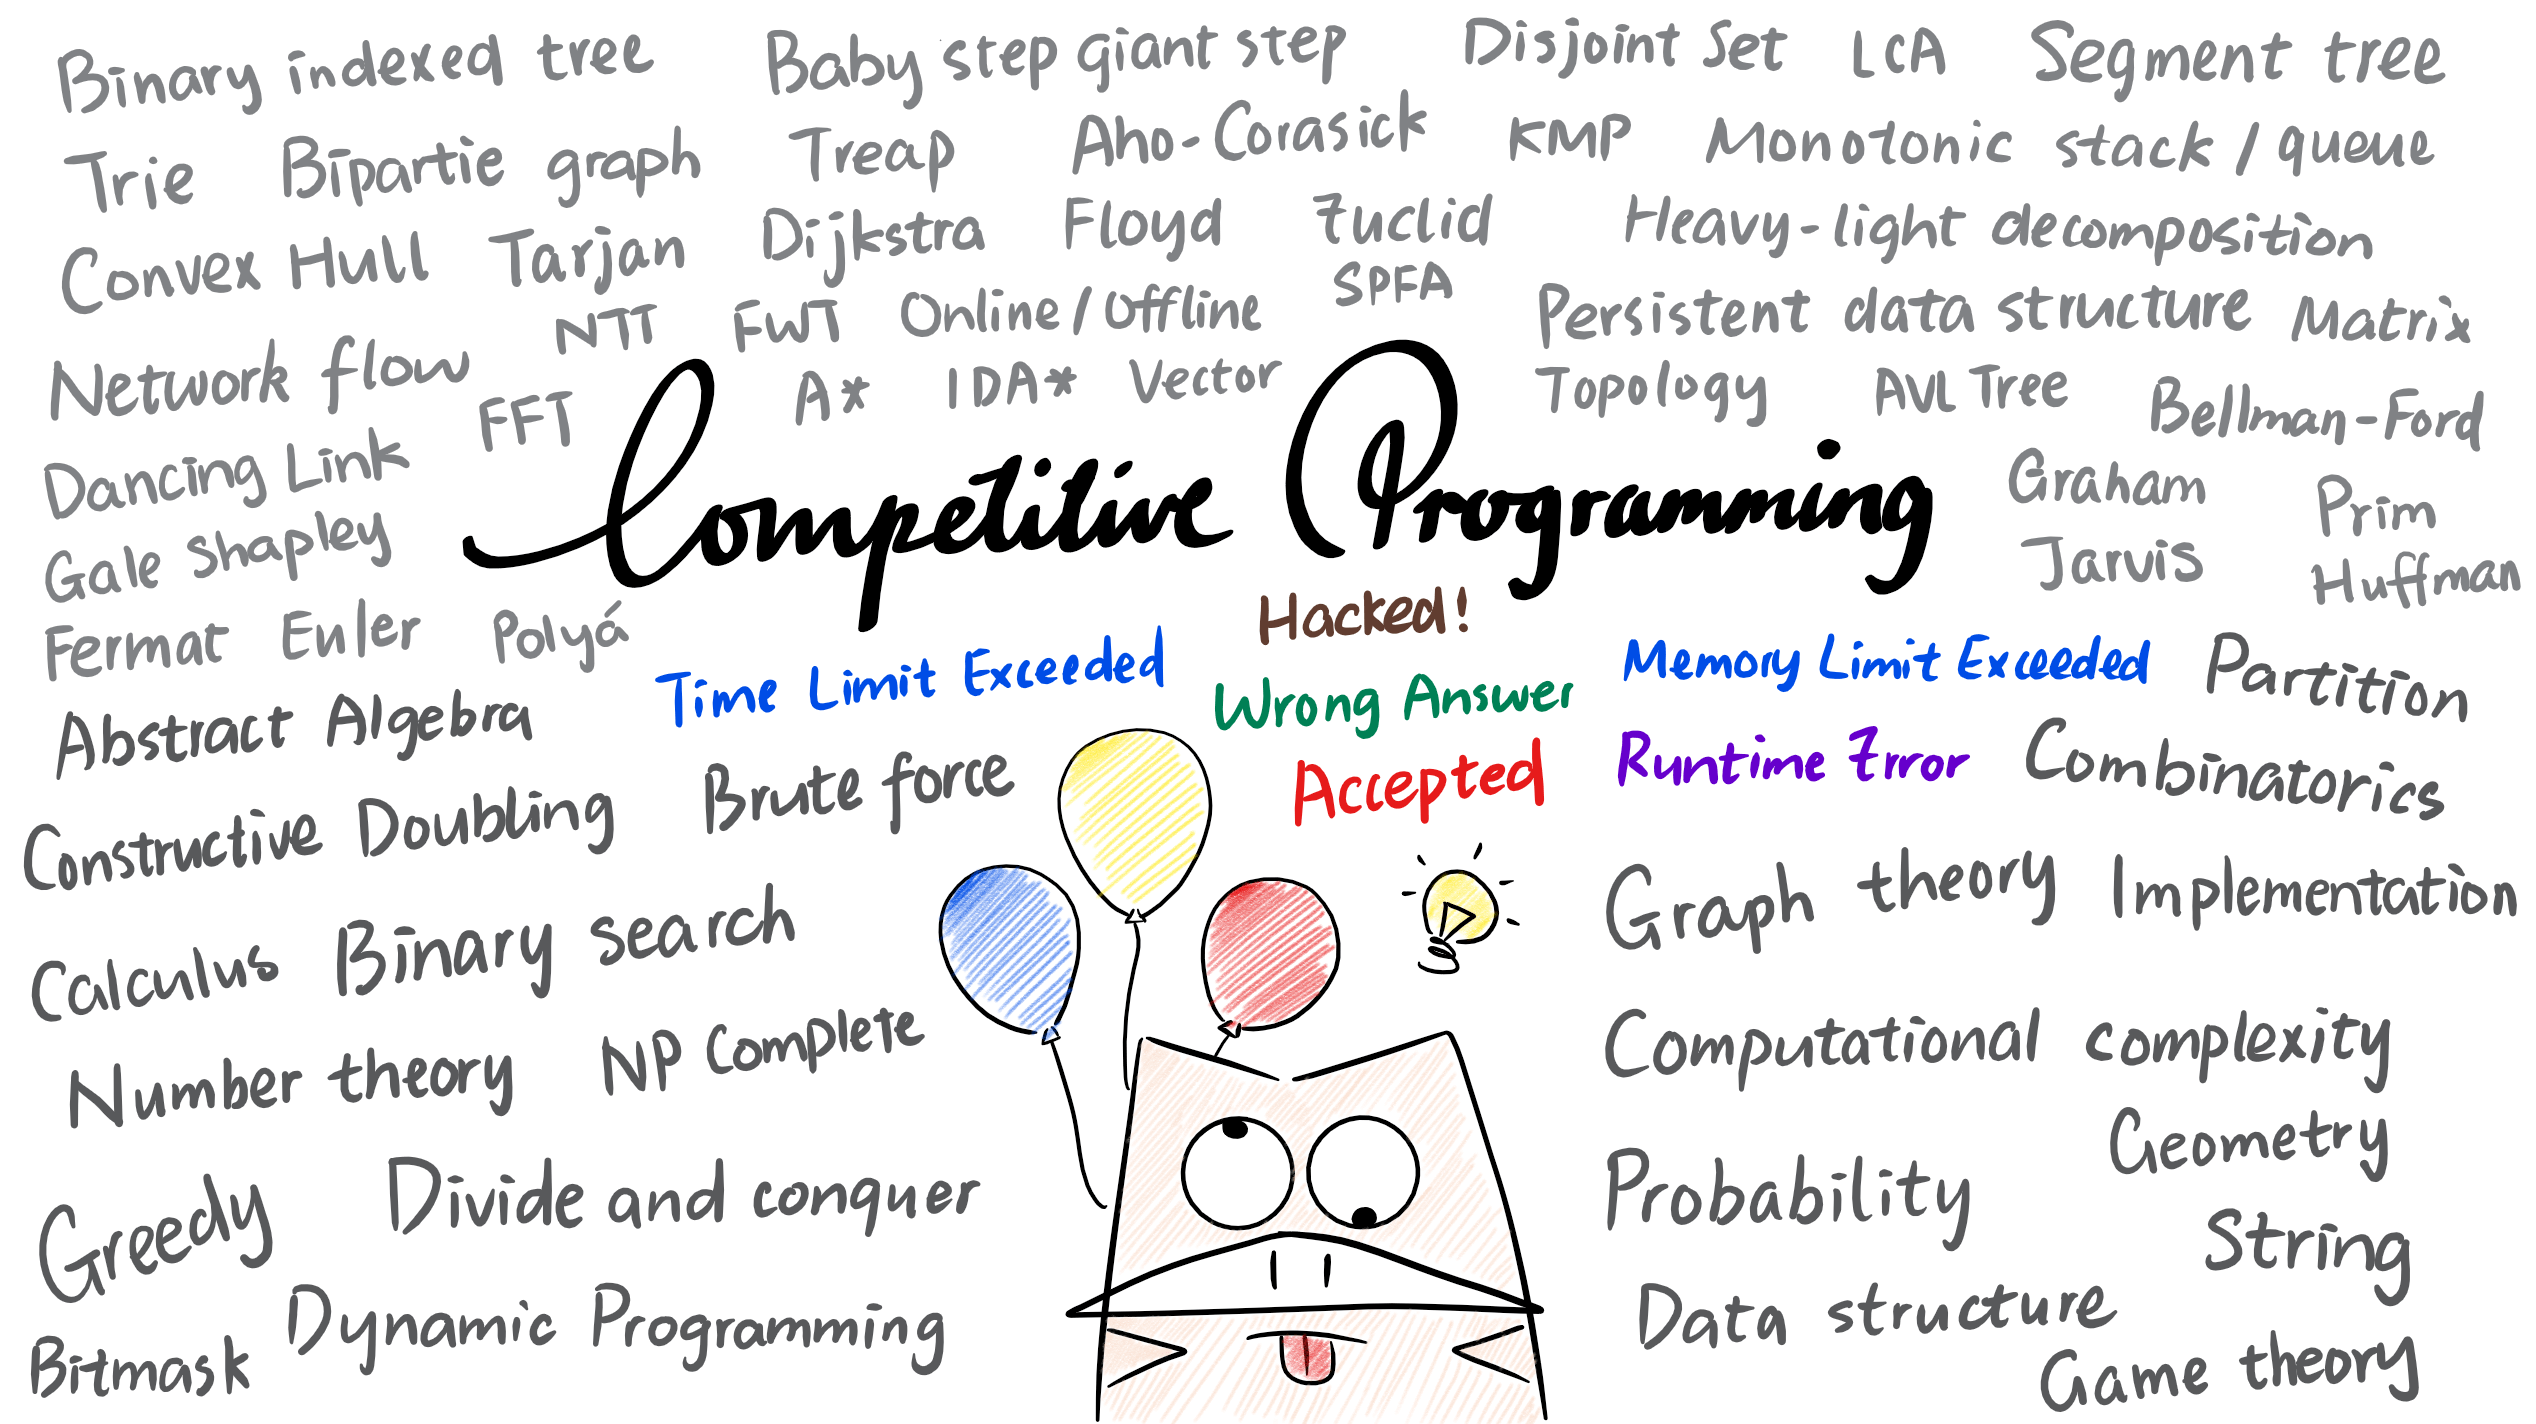 Binary indexed tree
Baby step giant step
Disjoint Set
LCA
Segment tree
Trie
Bipartie graph
Treap
Aho-Corasick
KMP
Monotonic stack / queue
Convex Hull
Tarjan
Dijkstra
Floyd
Euclid
Heavy-light decomposition
SPFA
Network flow
NTT
FWT
Online / Offline
Persistent data structure
Matrix
FFT
A*
IDA*
Vector
Topology
AVL Tree
Bellman-Ford
Dancing Link
Competitive Programming
Graham
Prim
Gale Shapley
Jarvis
Huffman
Fermat
Euler
Polyá
Hacked!
Time Limit Exceeded
Wrong Answer
Memory Limit Exceeded
Partition
Abstract Algebra
Brute force
Accepted
Runtime Error
Combinatorics
Constructive
Doubling
Graph theory
Implementation
Calculus
Binary search
Number theory
NP Complete
Computational complexity
Greedy
Divide and conquer
Probability
Geometry
String
Bitmask
Dynamic Programming
Data structure
Game theory